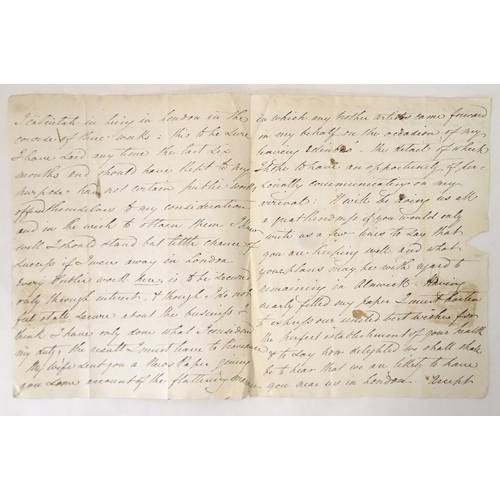 I calculate in being in London in the
course of three weeks: this to be sure
I have said my time the last six
months and should have kept to my
purpose had not certain public works
offered themselves to my consideration
and in the wish to obtain them I knew
well I should stand but little chance of
success if I were away in London
Every Public work here is to be secured
only through interest, & though I do not
feel at all secure about the business I
think I have only done what I considered
my duty, the result I must leave to
My Wife sent you a News Paper giving
you some account of the flattering manner
in which my brother artists came forward
in my behalf on the occasion of my
leaving Edinbo: the detail of which
I hope to have an opportunity of per-
sonally communicating on my
arrival: It will be doing us all
a great kindness if you would only
write us a few lines to say that
you are keeping well and what
your plans may be with regard to
remaining in Alnwick. Having
nearly filled my paper I must hasten
to express our united best wishes for
the perfect establishment of your health
& to say how delighted we shall all
be to hear that we are likely to have
you near us in London. Accept